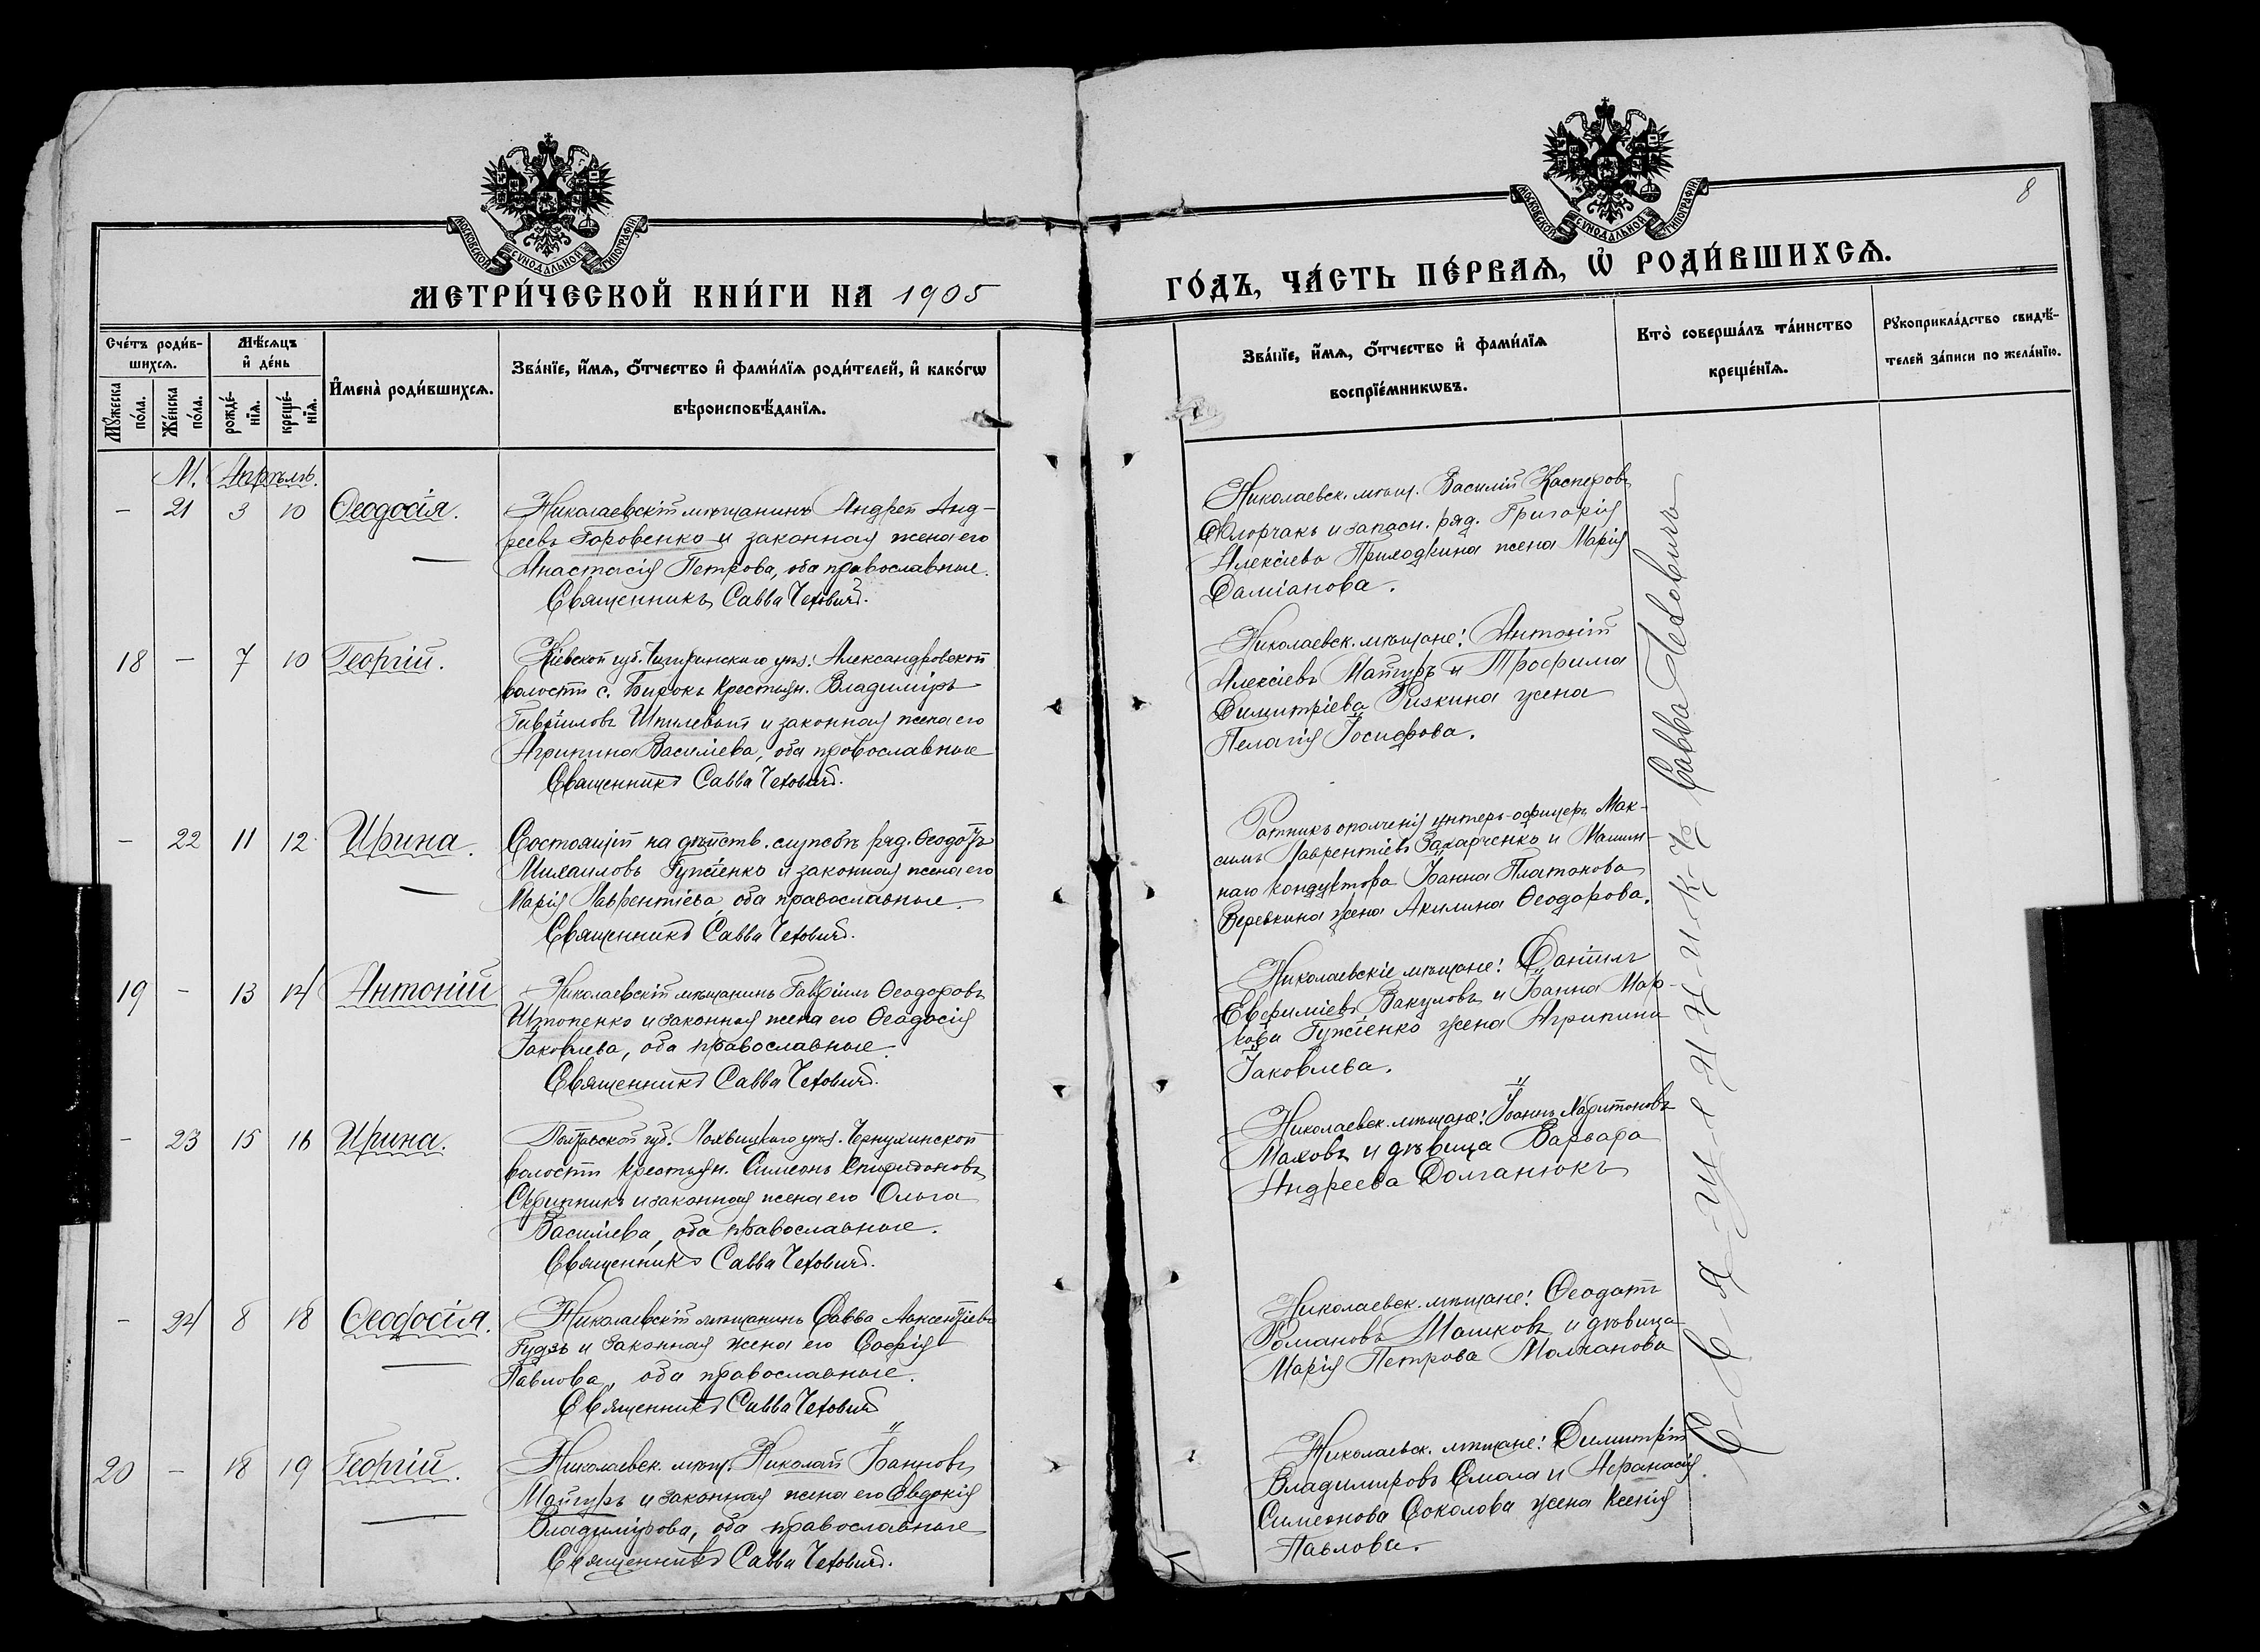 МОСКОВСКОЙ СУНОДАЛЬНОЙ ТИПОГРАФІИ
МЕТРИ́ЧЕСКОЙ КНИ́ГИ НА 1905
Сче́тъ роди́в-
шихсѧ.
Мѣ́сѧцъ
и҆ де́нь
Мꙋ́жеска
по́ла.
Же́нска
по́ла.
рожде́-
нїѧ.
креще́-
нїѧ.
И҆мена̀ роди́вшихсѧ.
Зва́нїе, и҆́мѧ, ѻ҆́тчество и҆ фами́лїѧ роди́телей, и҆ како́гѡ
вѣроисповѣ́данїѧ.
М. Апрѣль.
- 21 3 10 Ѳеодосія.
Николаевскій мѣщанинъ Андрей Анд-
реевъ Боровенко и законная жена его
Анастасія Петрова, оба православные.
Священникъ Савва Чехович.
18 - 7 10 Георгій.
Кіевской губ. Чигиринскаго уѣз. Александровской
волости с. Бирокъ крестьян. Владиміръ
Гавріиловъ Шпилевый и законная жена его
Агрипина Василіева, оба православные
Священникъ Савва Чехович.
- 22 11 12 Ирина.
Состоящій на дѣйств. службѣ ряд. Ѳеодотъ
Михаиловъ Гужіенко и законная жена его
Марія Лаврентіева, оба православные.
Священникъ Савва Чехович.
19 - 13 14 Антоній
Николаевскій мѣщанинъ Гавріилъ Ѳеодоровъ
Штопенко и законная жена его Ѳеодосія
Іаковлева, оба православные.
Священникъ Савва Чехович.
- 23 15 16 Ирина.
Полтавской губ. Лохвицкаго уѣз. Чернухинской
волости крестьян. Симеонъ Спиридоновъ
Скрипникъ и законная жена его Ольга
Василіева, оба православные.
Священникъ Савва Чехович.
- 24 8 18 Ѳеодосія.
Николаевскій мѣщанинъ Савва Авксентіевъ
Гудзь и законная жена его Софія
Павлова, оба православные.
Священникъ Савва Чехович
20 - 18 19 Георгій.
Николаевск. мѣщ. Николай Іоанновъ
Мойгуръ и законная жена его Евдокія
Владимірова, оба православные
Священникъ Савва Чехович.
8
МОСКОВСКОЙ СУНОДАЛЬНОЙ ТИПОГРАФІИ
ГО́ДЪ, ЧА́СТЬ ПЕ́РВАѦ, Ѡ҆ РОДИ́ВШИХСѦ.
Зва́нїе, и҆́мѧ, ѻ҆́тчество и҆ фами́лїѧ
воспрїе́мникѡвъ.
Кто̀ соверша́лъ та́инство
креще́нїѧ.
Рꙋкоприкла́дство свидѣ́-
телей за́писи по жела́нїю.
Николаевск. мѣщ. Василій Касперовъ
Склорчакъ и запасн. ряд. Григорія
Алексіева Приходкина жена Марія
Даміанова.
Николаевск. мѣщане: Антоній
Алексіевъ Майгуръ и Трофима
Димитріева Ризкина жена
Пелагія Іосифова.
Ратникъ ополченія унтеръ-офицеръ Мак-
симъ Лаврентіевъ Захарченко и Машин-
наго кондуктора Іоанна Платонова
Веревкина жена Акилина Ѳеодорова.
Николаевскіе мѣщане: Даніилъ
Евфиміевъ Вакуловъ и Іоанна Мар-
кова Гужіенко жена Агрипина
Іаковлева.
Николаевск. мѣщане: Іоаннъ Харитоновъ
Маховъ и дѣвица Варвара
Андреева Долганюкъ
Николаевск. мѣщане: Ѳеодотъ
Романовъ Машковъ и дѣвица
Марія Петрова Молчанова
Николаевск. мѣщане: Димитрій
Владиміровъ Смола и Аѳанасія
Симеонова Соколова жена Ксенія
Павлова.
С-в-я-щ-е-н-н-и-к-ъ Савва Чеховичъ